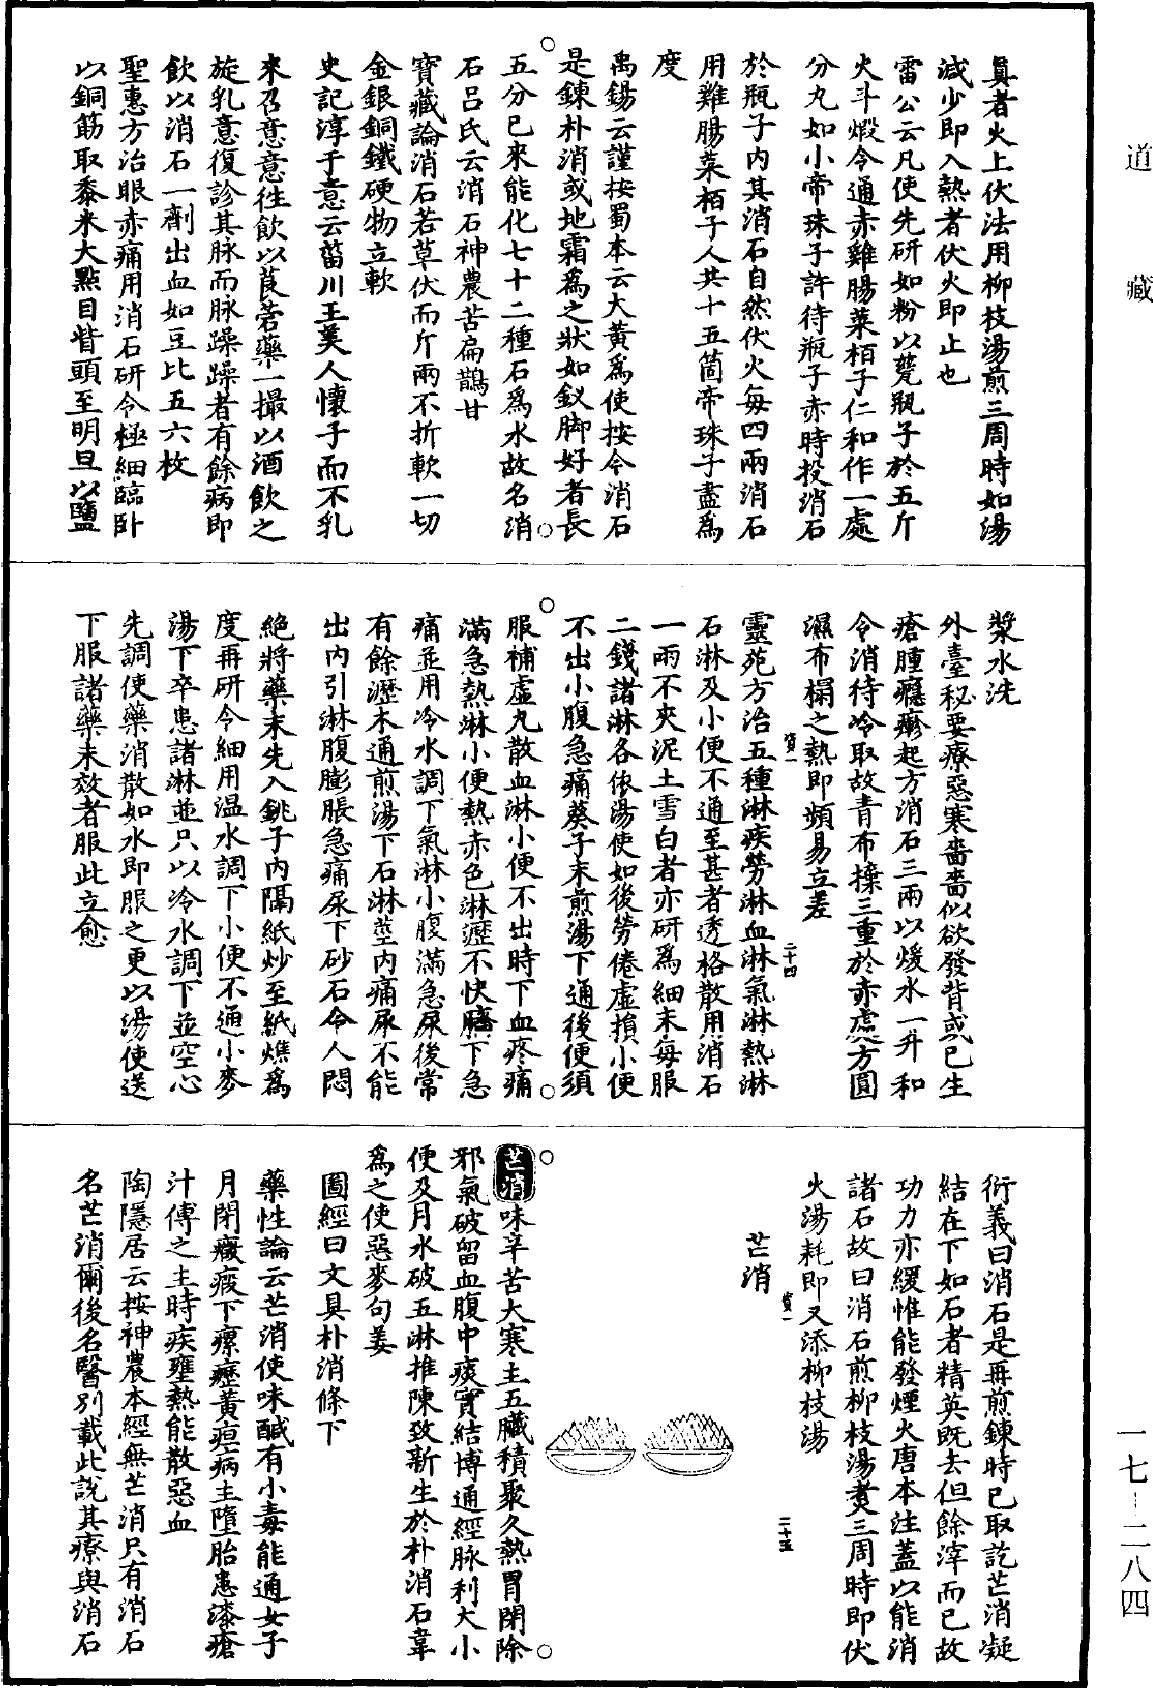 道藏
真者火上伏法用柳枝湯煎三周時如湯
減少即入熱者伏火即止也
雷公云凡使先研如粉以甆瓶子於五斤
火斗煆令通赤雞腸菜栢子仁和作一處
分丸如小帝珠子許待瓶子赤時投消石
於瓶子内其消石自然伏火每四兩消石
用雞腸菜栢子人共十五箇帝珠子盡爲
度
禹錫云謹按蜀本云大黃爲使按今消石
是鍊朴消或地霜爲之狀如釵脚好者長
五分已來能化七十二種石爲水故名消
石呂氏云消石神農苦扁鵲甘
寶藏論消石若草伏而斤兩不折軟一切
金銀銅鐵硬物立軟
史記淳于意云菑川王美人懷子而不乳
來召意意往飲以莨菪藥一撮以酒飲之
旋乳意復診其脉而脉躁躁者有餘病即
飲以消石一劑出血如豆比五六枚
聖惠方治眼赤痛用消石研令極細臨卧
以銅筯取黍米大點目眥頭至明旦以鹽
漿水洗
外臺秘要療惡寒嗇嗇似欲發背或已生
瘡腫癮疹起方消石三兩以煖水一升和
令消待冷取故青布揲三重於赤處方圓
濕布榻之熱即頻易立差
貨一
二十四
靈苑方治五種淋疾勞淋血淋氣淋熱淋
石淋及小便不通至甚者透格散用消石
一兩不夾泥土雪白者亦研爲細末每服
二錢諸淋各依湯使如後勞倦虛損小便
不出小腹急痛葵子末煎湯下通後便須
服補虛丸散血淋小便不出時下血疼痛
滿急熱淋小便熱赤色淋瀝不快臍下急
痛並用冷水調下氣淋小腹滿急尿後常
有餘瀝木通煎湯下石淋莖内痛尿不能
出内引淋腹膨脹急痛尿下砂石令人悶
絶將藥末先入銚子内隔紙炒至紙燋爲
度再研令細用温水調下小便不通小麥
湯下卒患諸淋並只以冷水調下並空心
先調使藥消散如水即服之更以湯使送
下服諸藥未效者服此立愈
衍義曰消石是再煎鍊時已取訖芒消凝
結在下如石者精英既去但餘滓而已故
功力亦緩惟能發煙火唐本注蓋以能消
諸石故曰消石煎柳枝湯煑三周時即伏
火湯耗即又添柳枝湯
貨一
二十五
芒消
芒消味辛苦大寒主五臟積聚久熱胃閉除
邪氣破留血腹中痰實結博通經脉利大小
便及月水破五淋推陳致新生於朴消石韋
爲之使惡麥句姜
圖經曰文具朴消條下
藥性論云芒消使味鹹有小毒能通女子
月閉癥瘕下瘰癧黃疸病主墮胎患漆瘡
汁傅之主時疾壅熱能散惡血
陶隱居云按神農本經無芒消只有消石
名芒消爾後名醫别載此說其療與消石
一七-二八四